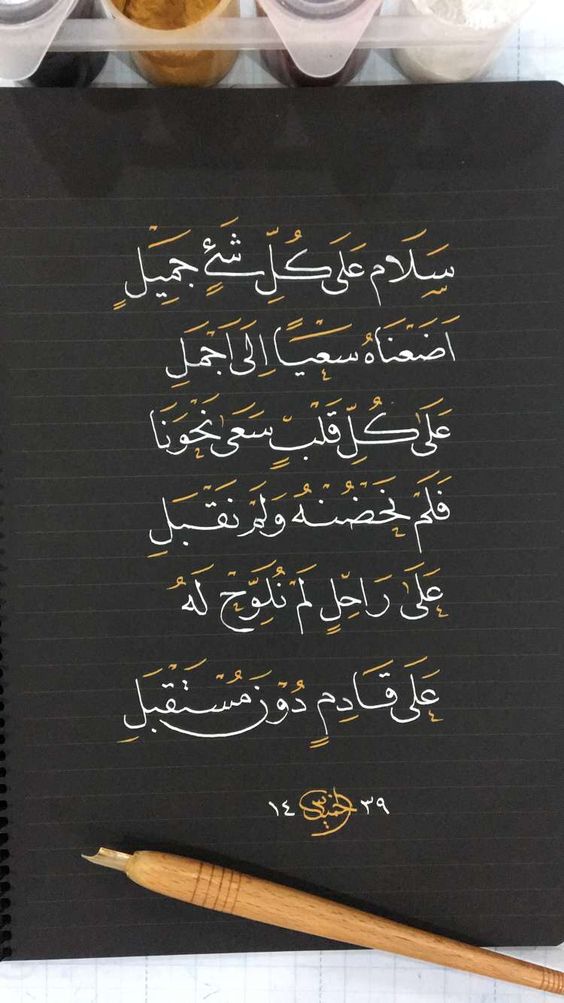 سَلَام عَلَى كُلِّ شَئٍ جَمِيلٍ
اَضَعْنَاهُ سَعْيًا اِلَى اَجْمَلِ
عَلَى كُلِّ قَلْبٍ سَعَى نَحْوَنَا
فَلَمْ نَحْضُنْهُ وَلَمْ نَقْبَلِ
عَلَى رَاحِلٍ لَمْ نُلَوِّحْ لَهُ
عَلَى قَادِمٍ دُوْنَ مُسْتَقْبَلِ
٣٩ ١٤